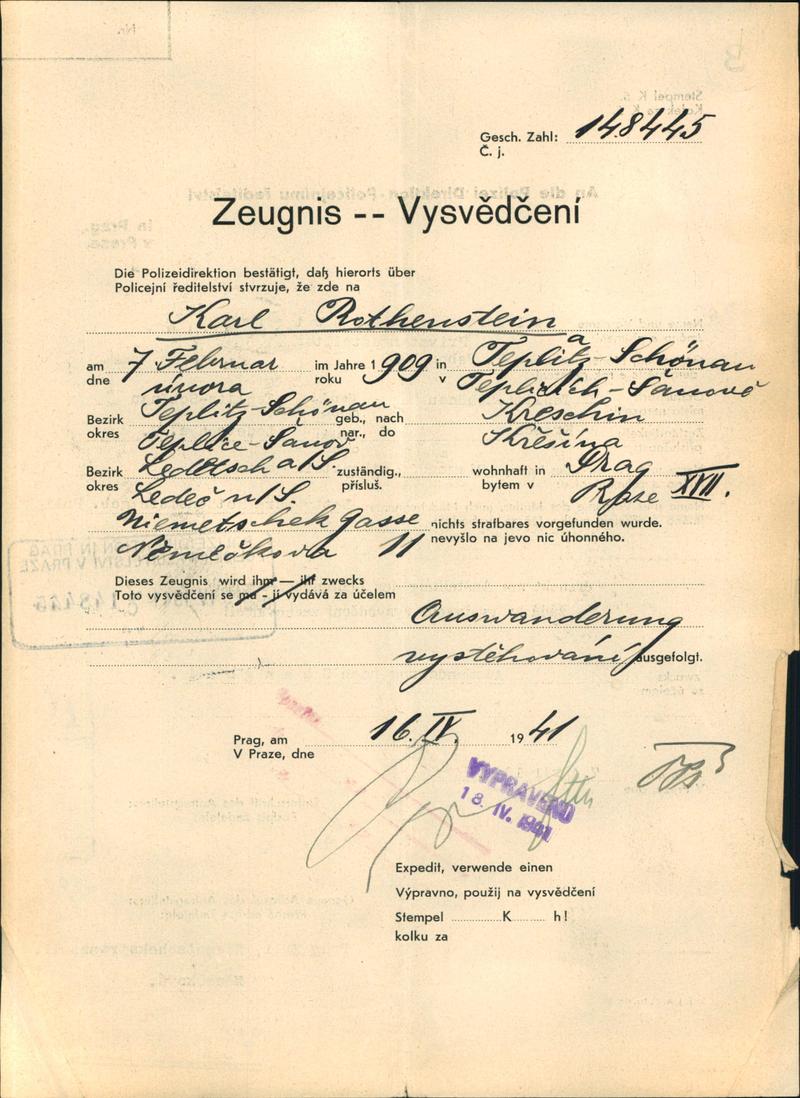 Nr.
Stempel K 5.
Kolek za K
Gesch. Zahl: 148445
Č. j.
An die Polizei Direktion - Policejnímu ředitelství
in Prag.
v Praze.
Zeugnis -- Vysvědčení
Die Polizeidirektion bestätigt, daß hierorts über
Policejní ředitelství stvrzuje, že zde na
Karl Rothenstein
am 7 Februar im Jahre 1909 in Teplitz-Schönau
dne února roku v Teplicích-Šanově
Bezirk Teplitz-Schönau geb., nach Kreschin
okres Teplice-Šanov nar., do Křešína
Bezirk Ledetsch a/S. zuständig., wohnhaft in Prag
okres Ledeč n/S. přísluš. bytem v Praze XVII.
Niemetschek gasse nichts strafbares vorgefunden wurde.
Němečkova 11 nevyšlo na jevo nic úhonného.
Dieses Zeugnis wird ihm — ihr zwecks
Toto vysvědčení se mu - jí vydává za účelem
Auswanderung
vystěhování ausgefolgt.
Prag, am 16. IV. 1941
V Praze, dne
VYPRAVENO
18. IV. 1941
Expedit, verwende einen
Výpravno, použij na vysvědčení
Stempel K h!
kolku za